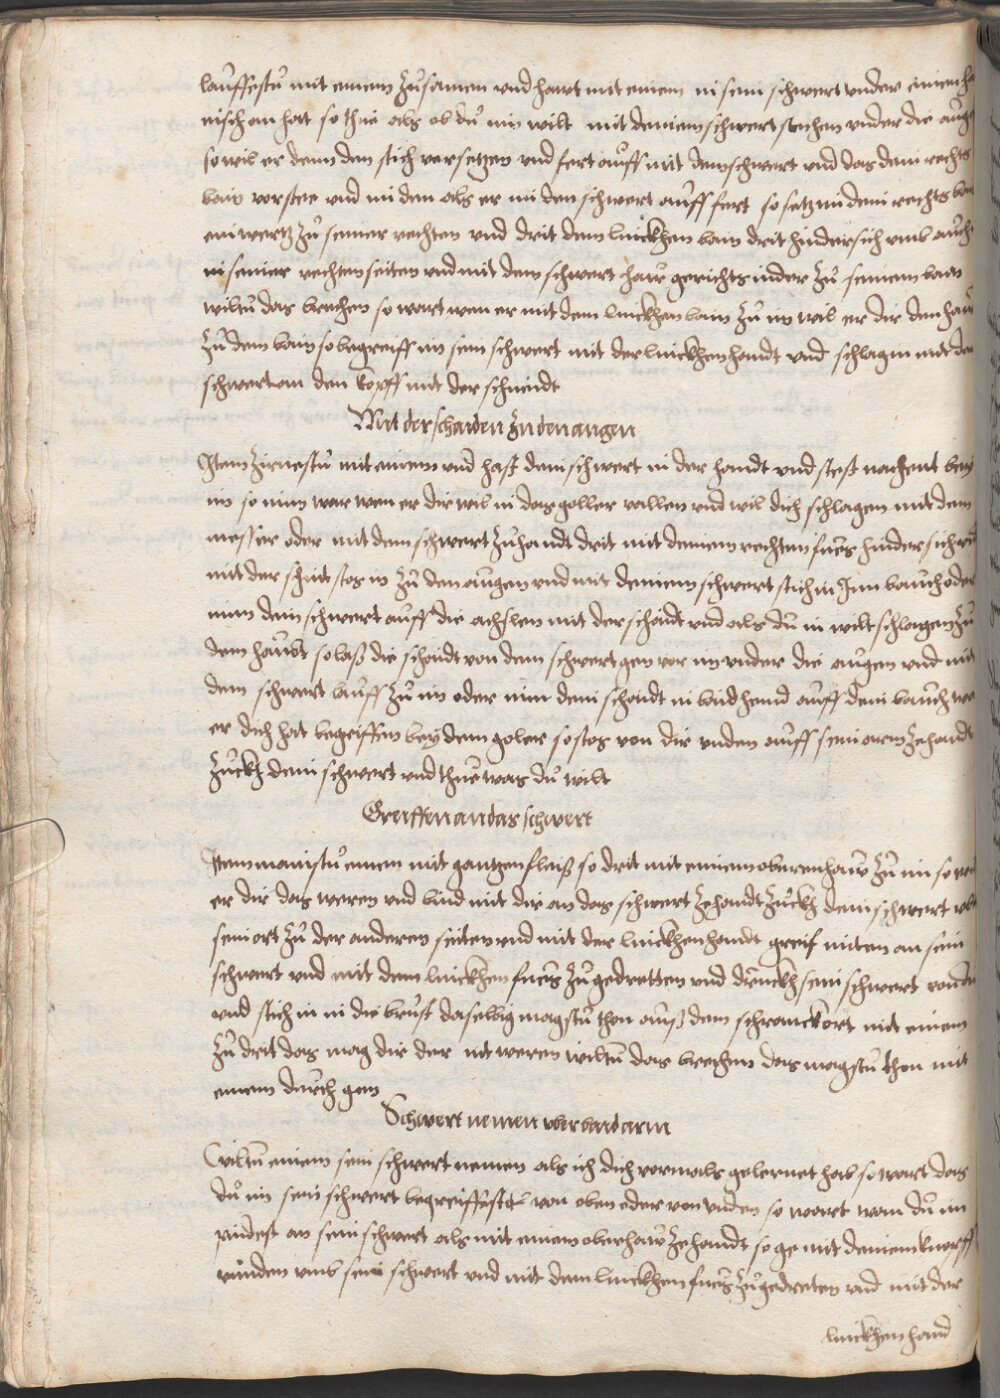 lauffestu mit einem zusamen vnd hawt mit einem in sein schwert vnder einem ha
nisch an hat so thue als ob du im wilt mit deinem schwert stechen vnder die auge
so wil er denn den stich versetzen vnd fert auff mit dem schwert vnd das dein rechts
bain vorstee vnd in dem als er mi den schwert auff fert so setz im dein rechts bain
ein wertz zu seiner rechten vnd drit dem linckhen bain drit hindersich vmb auch
in seiner rechten seiten vnd mit dem schwert haw gerichts nider zu seinem bain
wiltu das brechen so wart wen er mit dem linckhen bain zu im wil er dir den haw
zu dem bain so begreiff im sein schwert mit der linckhen handt vnd schlag in mit dem
schwert an den kopff mit der schneidt
Mit der schaiden zu den augen
Item zirnestu mit einem vnd hast dein schwert in der handt vnd stest nachent bey
im so nim war wen er dir wil in das goller vallen vnd wil dich schlagen mit dem
messer oder mit dem schwert zuhandt drit mit deinem rechten fues hindersich vnd
mit der schaid stos in zu den augen vnd mit deinem schwert stich in Inn bauch oder
nim dein schwert auff die achslen mit der schaidt vnd als du in wilt schlagen zu
dem haubt so laß die schaidt von dem schwert gen vor im vnder die augen vnd mit
dem schwert lauff zu im oder nim dein schaidt in baid hend auff dein bauch wen
er dich hat begriffen bey dem goler so stos von dir vnden auff sein arem zehandt
zuckh dein schwert vnd thue was du wilt
Greiffen an das schwert
Item mainstu einen mit gantzen fleiß so drit mit einem oberen haw zu im so wil
er dir das weren vnd bind mit dir an das schwert zehandt zuckh dein schwert vber
sein ort zu der anderen seiten vnd mit der linckhen handt greif miten an sein
schwert vnd mit dem linckhen fues zu gedretten vnd druckh sein schwert von dir
vnd stich in in die brust daselbig magstu thon auß dem schranckort mit einem
zu drit das mag dir der nit weren wiltu das brechen das magstu thon mit
einem durch gen
Schwert nemen vber baid arm
Wiltu einem sein schwert nemen als ich dich vormals gelernet hab so wart das
du im sein schwert begreiffest von oben oder von vnden so wart wan du im
pindest an sein schwert als mit einem oberhaw zehandt so ge mit deinem knopff
vnnden vmb sein schwert vnd mit dem linckhen fues zugedreten vnd mit der
linckhen hand